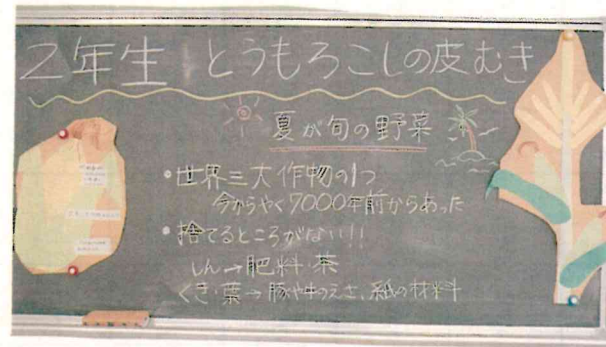 2年生 とうもろこしの皮むき
夏が旬の野菜
•世界三大作物の1つ
今からやく7000年前からあった
•捨てるところがない!!
しん→肥料・茶
くき・葉→豚や牛のえさ、紙の材料